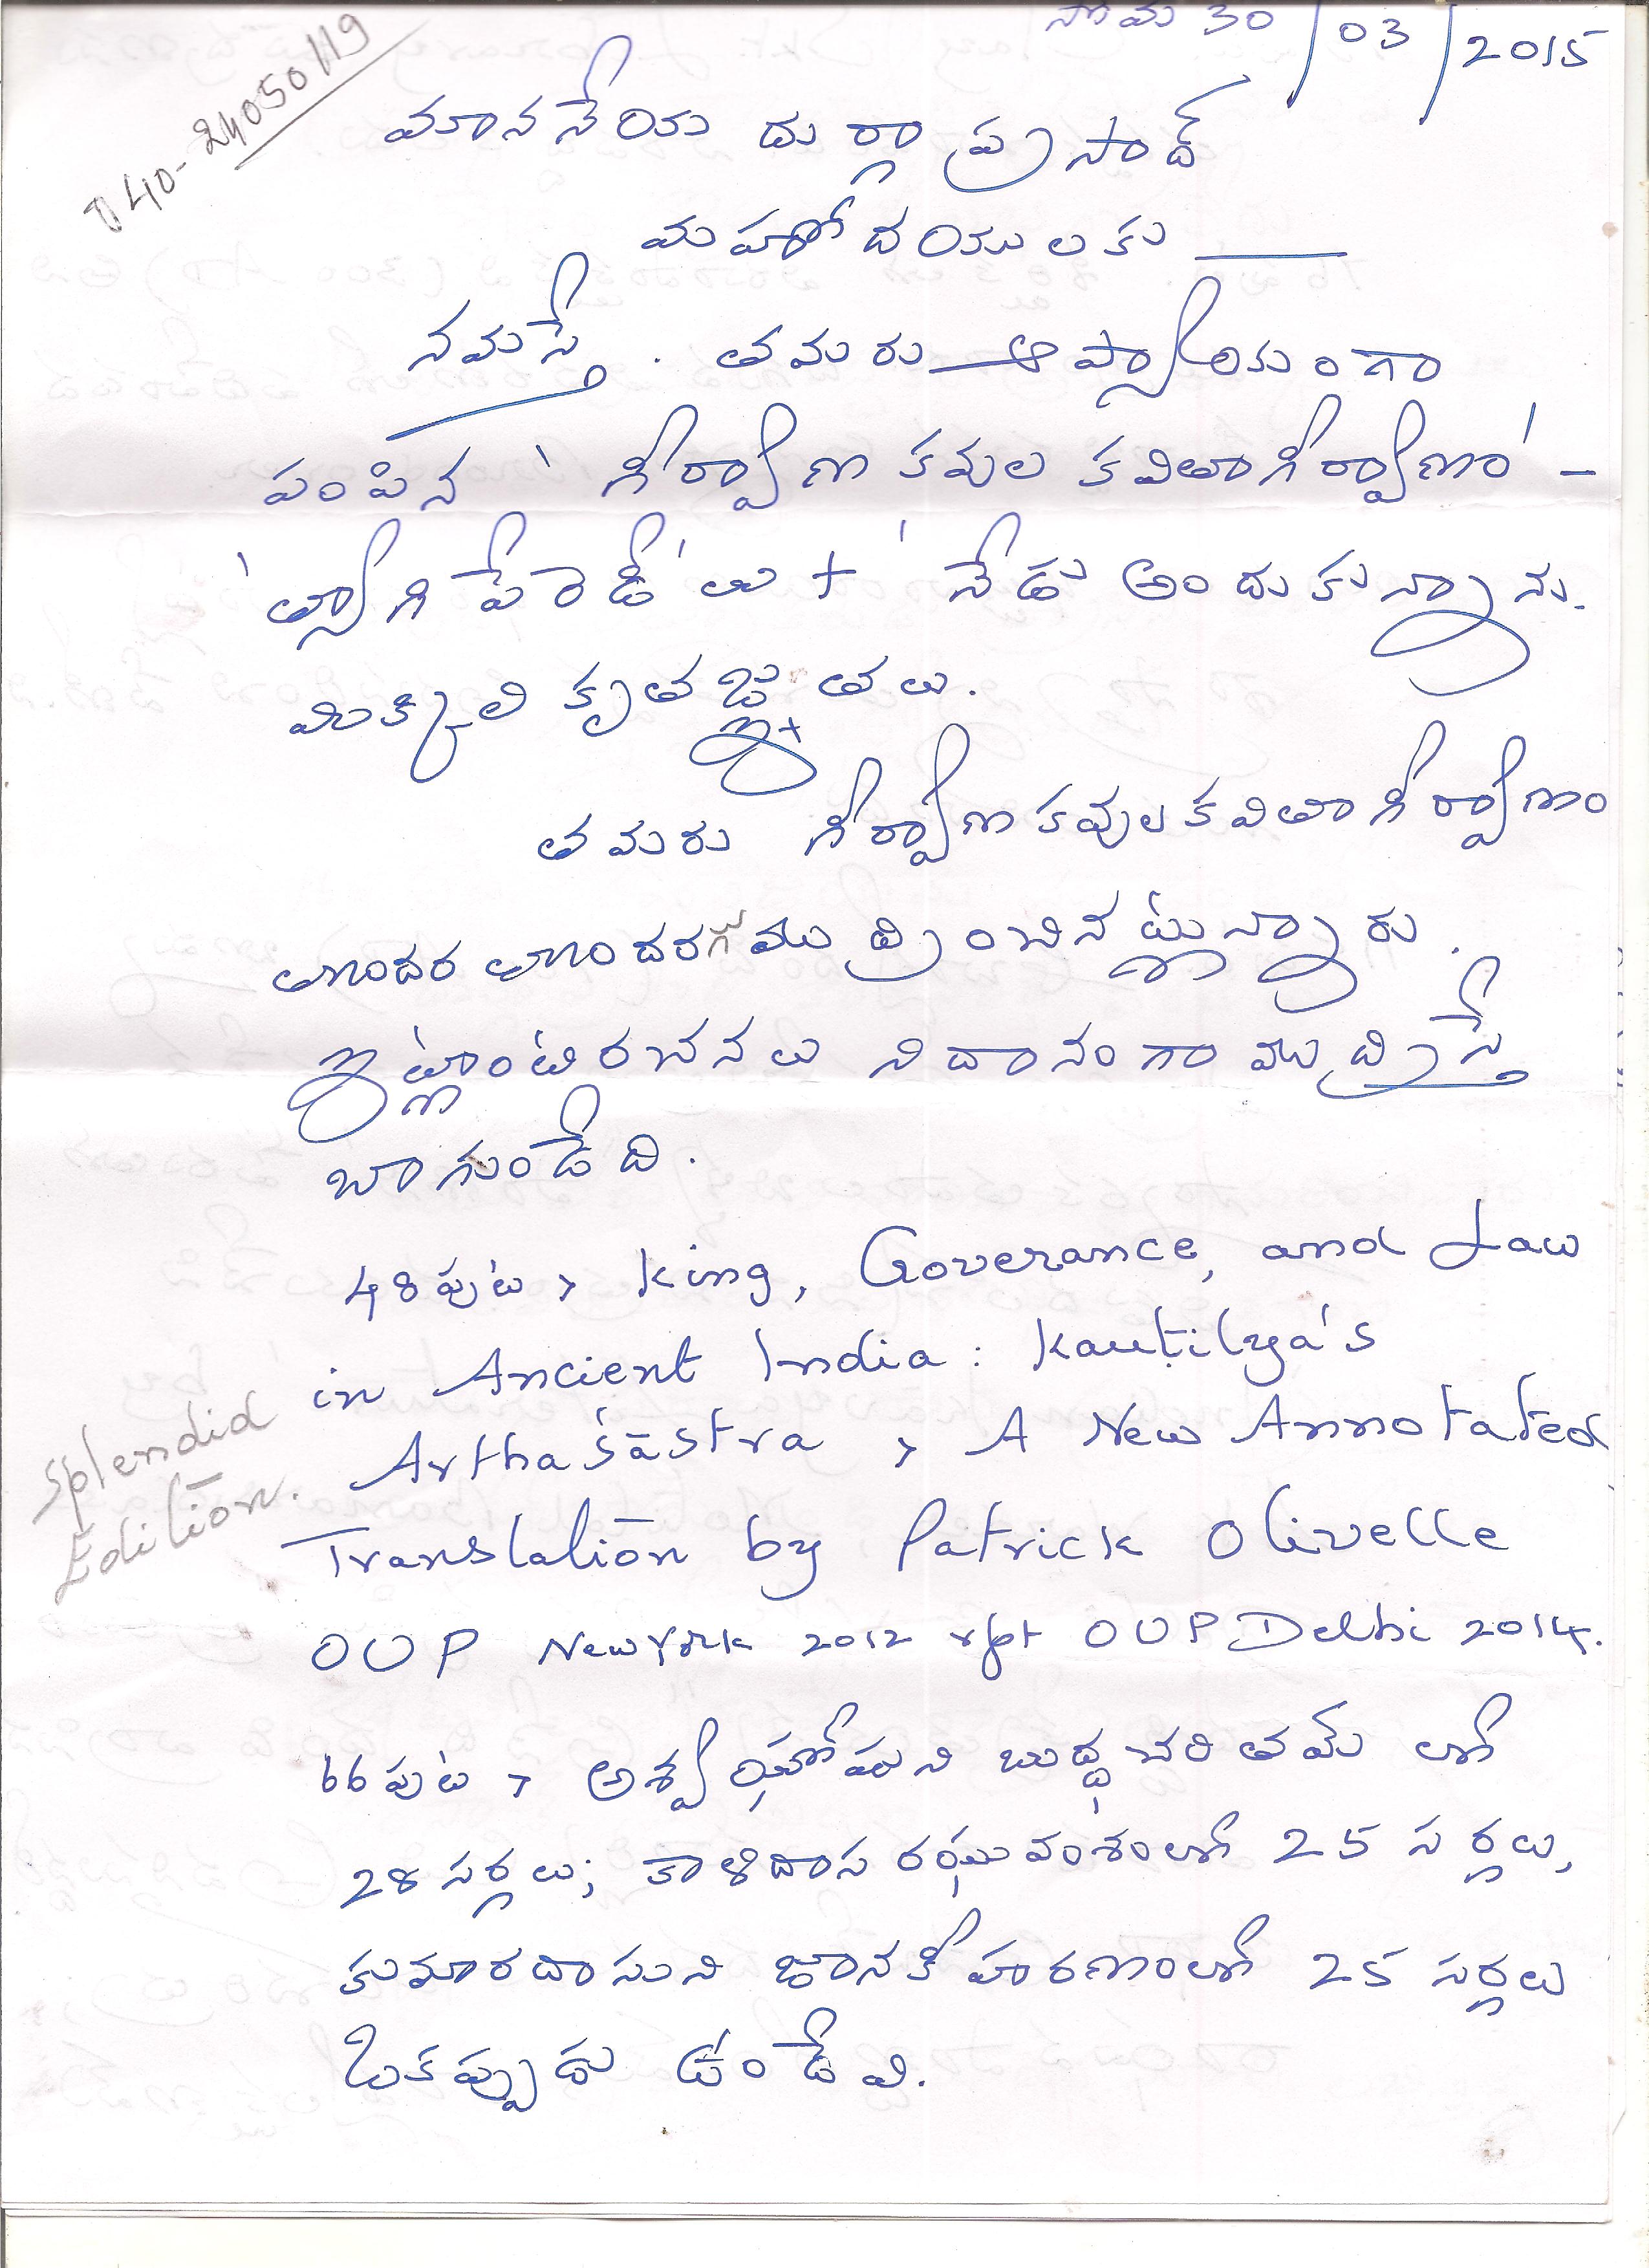 సోమ 30/03/2015
040-24050119
మాననీయ దుర్గాప్రసాద్
మహోదయులకు —
నమస్తే. తమరు ఆప్యాయంగా
పంపిన 'గీర్వాణ కవుల కవితాగీర్వాణం' –
'త్యాగి పేరడీ'లు + నేడు అందుకున్నాను.
మిక్కిలి కృతజ్ఞతలు.
తమరు గీర్వాణ కవుల కవితాగీర్వాణం
తొందర తొందరగా ముద్రించినట్టున్నారు.
ఇట్లాంటి రచనలు నిదానంగా ముద్రిస్తే
బాగుండేది.
48 పుట > King, Goverance, and Law
in Ancient India : Kauṭilya's
Arthaśāstra > A New Annotated
Splendid Edition.
Translation by Patrick Olivelle
OUP New York 2012 rpt OUP Delhi 2014.
66 పుట > అశ్వఘోషుని బుద్ధచరితమ్ లో
28 సర్గలు; కాళిదాస రఘువంశంలో 25 సర్గలు,
కుమారదాసుని జానకీహరణంలో 25 సర్గలు
ఒకప్పుడు ఉండేవి.